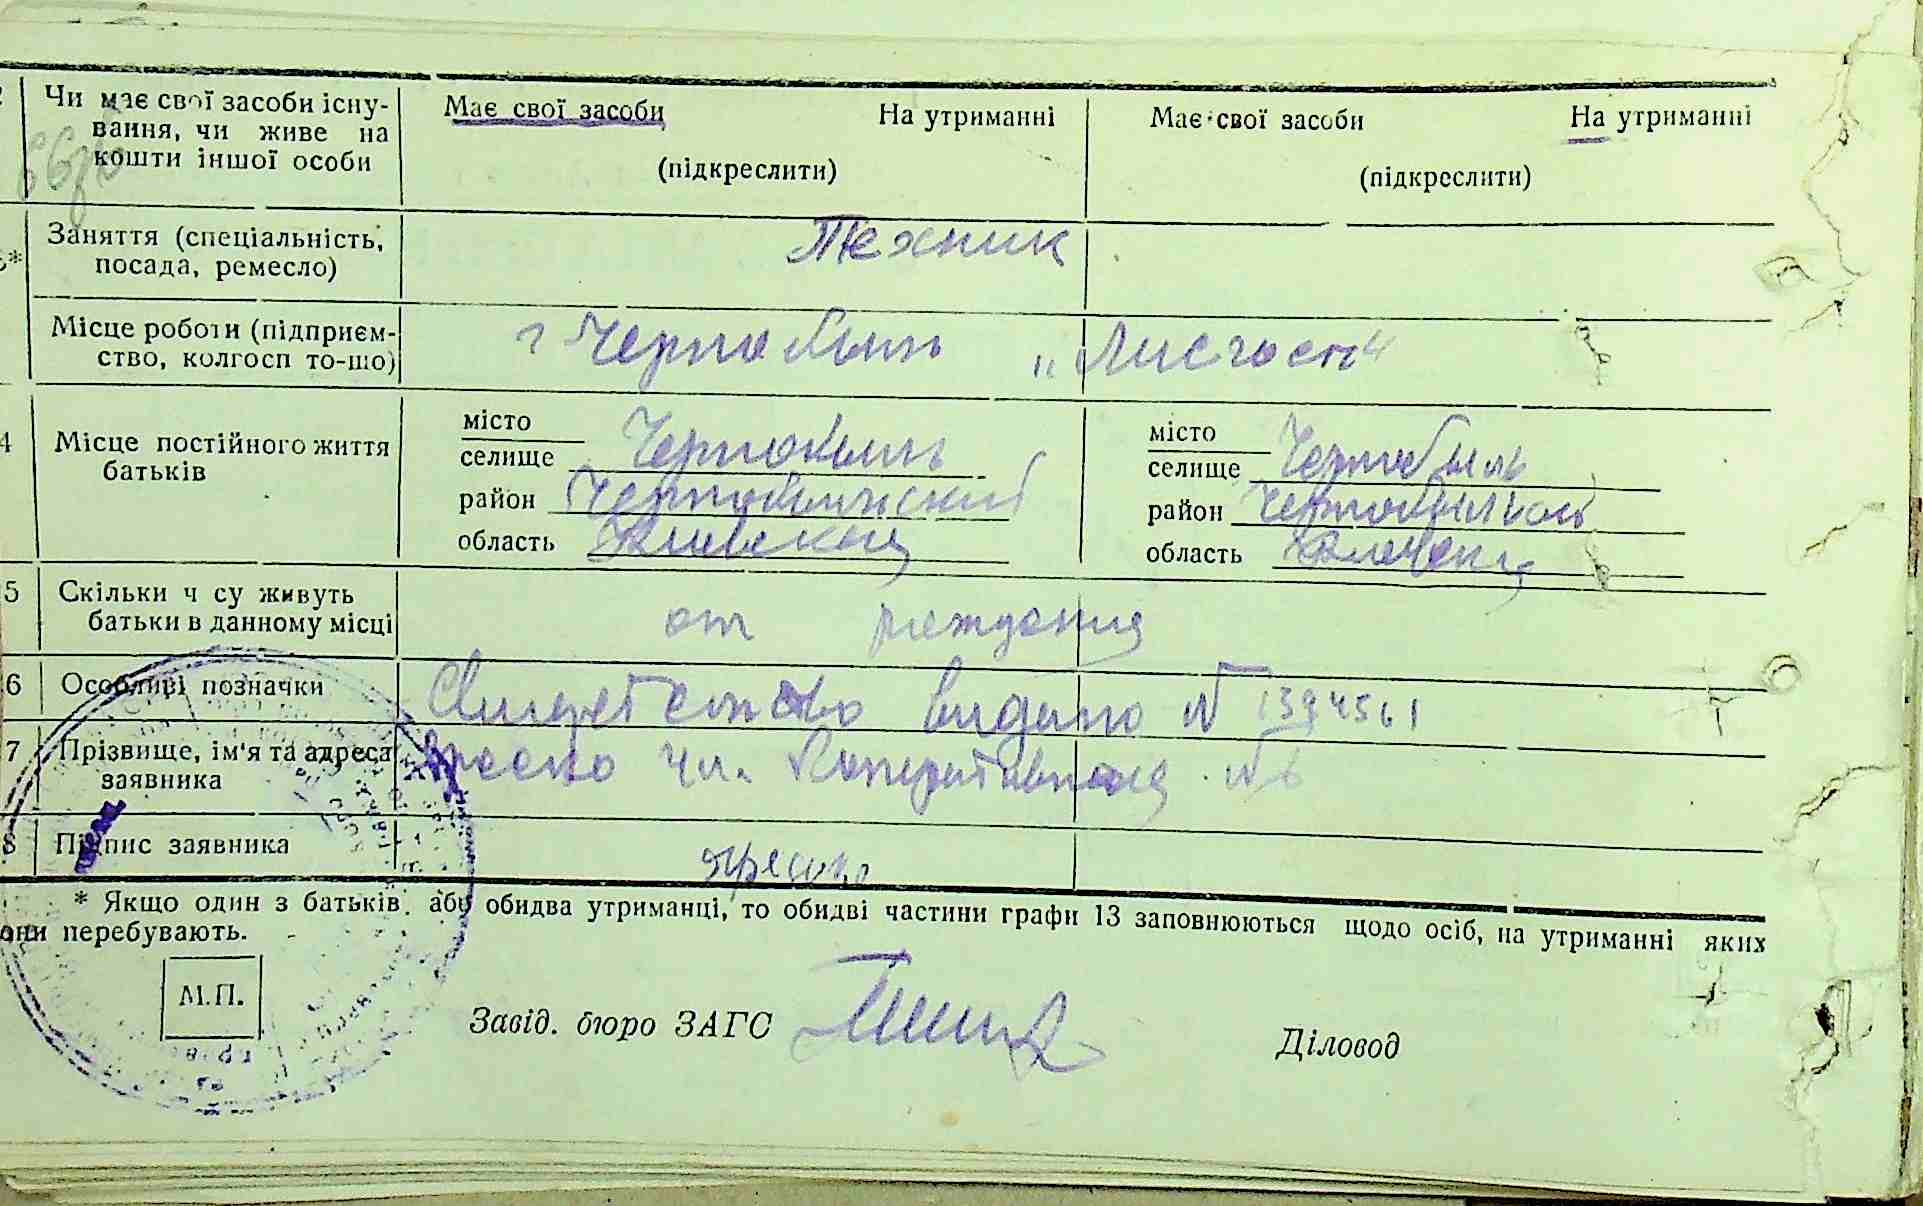 Чи має свої засоби існу-
вання, чи живе на
кошти іншої особи
Має свої засоби На утриманні
(підкреслити)
Має свої засоби На утриманні
(підкреслити)
Заняття (спеціальність,
посада, ремесло)
Техник
Місце роботи (підприєм-
ство, колгосп то-що)
г Чернобыль „Лисгосп“
4
Місце постійного життя
батьків
місто
селище Чернобыль
район Чернобыльский
область Киевская
місто
селище Чернобыль
район
область Киевская
5
Скільки ч су живуть
батьки в данному місці
от рождения
6 Особливі позначки
видано № 1394561
7 Прізвище, ім'я та адреса
заявника
ул. Кооперативная №6
8 Підпис заявника
* Якщо один з батьків, або обидва утриманці, то обидві частини графи 13 заповнюються щодо осіб, на утриманні яких
они перебувають.
М.П.
Завід. бюро ЗАГС
Діловод